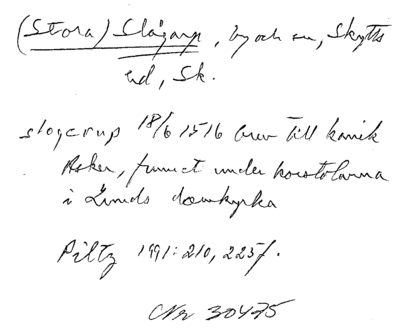 (Stora) Slågarp, by och sn, Skytts
hd, Sk.
slogerup 18/6 1516 brev till kanik
Asker, funnet under korstolarna
i Lunds domkyrka
Piltz 1991: 210, 225f.
Nr 30475